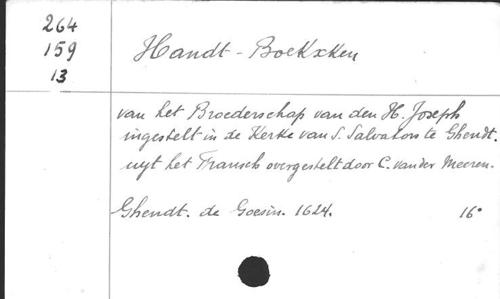 264
159
13
Handt-Boekxken
van het Broederschap van den H. Joseph
ingestelt in de Kerke van S. Salvators te Ghendt.
uyt het Fransch overgestelt door C. vander Meeren.
Ghendt. de Goesin. 1624. 16°